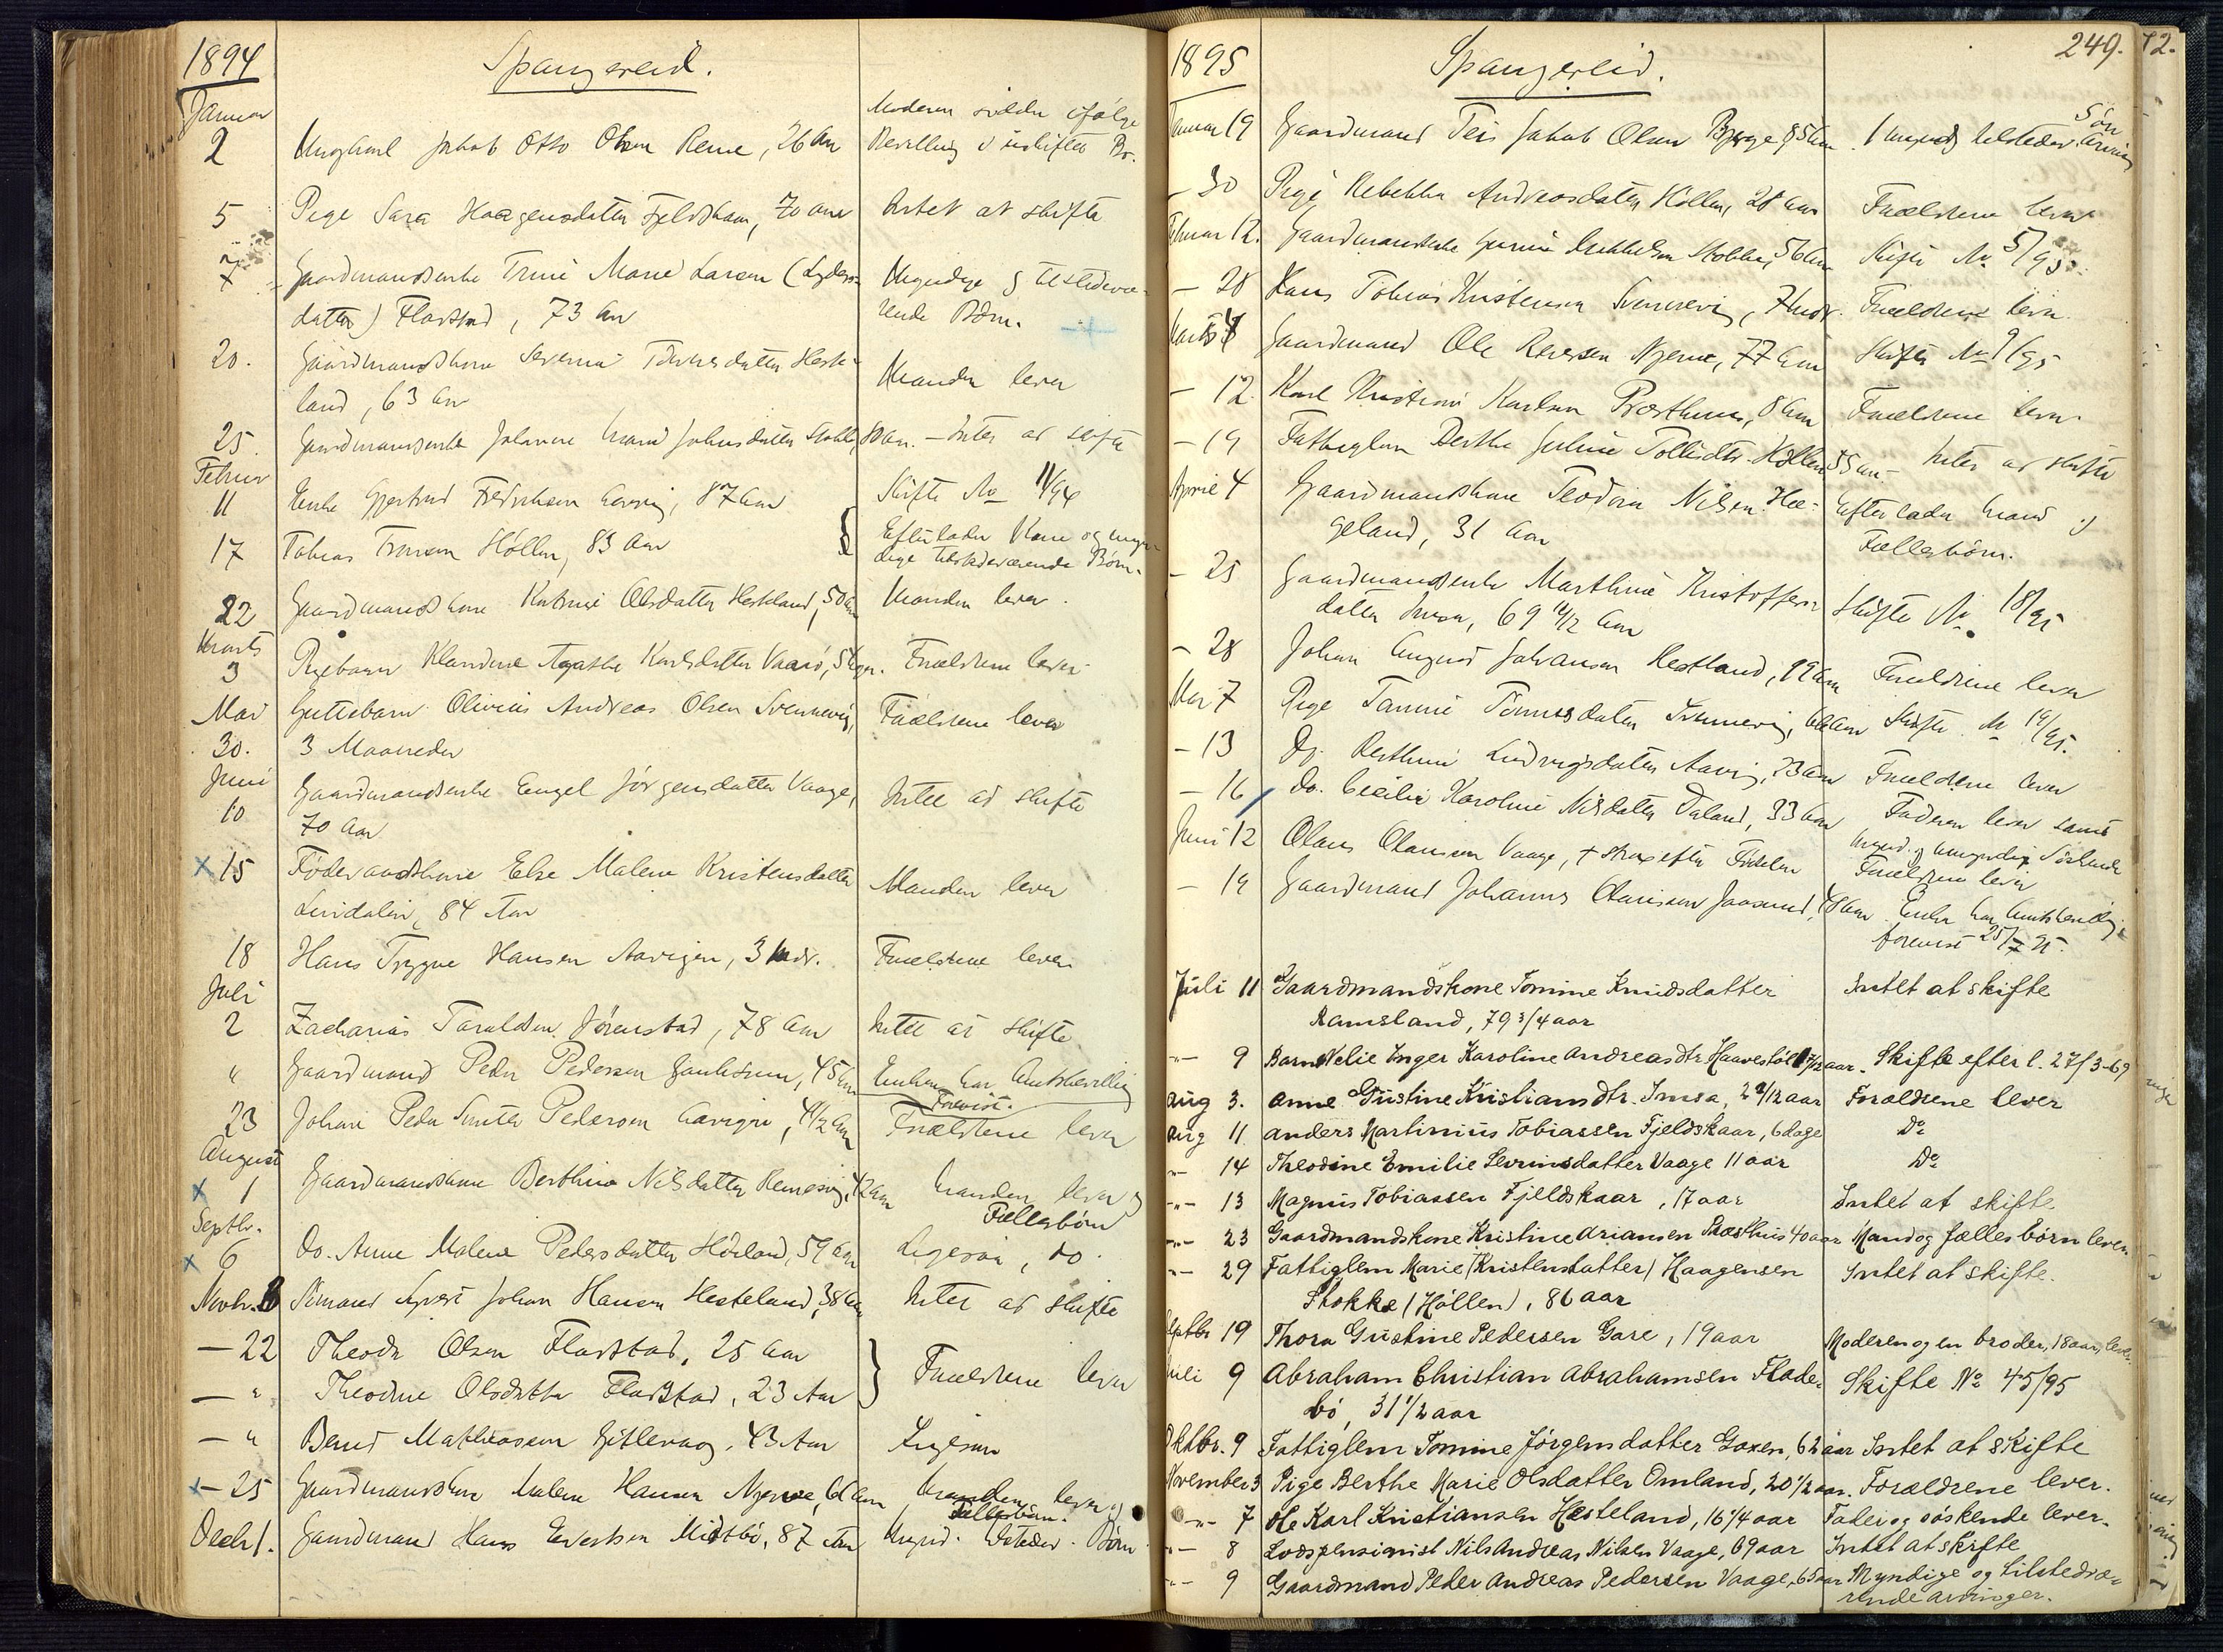 1894
Spangereid.
Januar
2 Ungkarl Jakob Otto Olsen Reme, 26 Aar Moderen sidder ifølge
Bevilling i uskiftet Bo.
5 Pige Sara Haagensdatter Fjeldskaar, 70 aar Intet at skifte
7 Gaardmandsenke Trine Marie Larsen (Lyders-
datter) Fladstad, 73 Aar Myndige og tilstedevæ-
rende Børn.
20. Gaardmandskone Severine Tønnesdatter Heste-
land, 63 Aar Manden lever
25. Gaardmandsenke Johanne Marie Johnsdatter Stokke, 80 aar. – Intet at skifte
Februar
11 Enke Gjertrud Fredriksen Aavig, 87 Aar Skifte No 11/94
17 Tobias Høllen, 83 Aar Efterlader Kone og myn-
dige tilstedeværende Børn.
22 Gaardmandskone Katrine Olsdatter Hesteland, 50 Aar Manden lever.
Marts
3 Pigebarn Klandine Agathe Karlsdatter Vaarø, Forældrene lever.
Mai Guttebarn Olivius Andreas Olsen Svennevig, Forældrene lever
30. 3 Maaneder
Juni
10 Gaardmandsenke Engel Jørgensdatter Vaage, Intet at skifte
70 Aar
x 15 Føderaadskone Else Malene Kristensdatter Manden lever
Lindalen, 84 Aar
18 Hans Trygve Hansen Aavigen, 3 Mdr. Forældrene lever
Juli
2 Zacharias Taraldsen Jørenstad, 78 Aar Intet at skifte
" Gaardmand Peder Pedersen, 45 Aar Enken har Amtsbevilling
Forevist.
23 Johan Peder Pedersen Aavigen, 4 1/2 Aar Forældrene lever
August
x 1 Gaardmandskone Berthine Nilsdatter Remesvig, 42 aar Manden lever og
Fællesbørn
Septbr.
x 6 Do. Anne Malene Pedersdatter Høiland, 59 Aar Ligesaa, do.
Novbr. Sømand Syvert Johan Hansen Hesteland, 38 Aar Intet at skifte
— 22 Theodor Olsen Fladstad, 25 Aar } Forældrene lever
— " Theodine Olsdatter Fladstad, 23 Aar
— " Bernt Mathiassen Gitlevaag, 43 Aar Ligesaa
x — 25 Gaardmandskone Malene Hansen Njerve, 60 Aar Manden lever og
Fællesbørn.
Decbr 1. Gaardmand Hans Evertsen Midtbø, 87 Aar Mynd. tilstedev. Børn
1895
Spangereid.
249. 72.
Januar 19 Gaardmand Teis Jakob Olsen Bjerge, 85 Aar. 1 myndig tilstedev. Søn
Arving
— 30 Pige Rebekka Andreasdatter Høllen, 28 Aar Forældrene lever
Februar 12. Gaardmandsenke Gurine Stokke, 56 Aar Skifte No 5/95.
— 28 Hans Tobias Kristensen Svennevig, 7 Mdr. Forældrene lever.
Marts Gaardmand Ole Reiersen Njerve, 77 Aar Skifte No 9/95
— 12. Karl Kristian Karlsen Præsthus, 8 Aar Forældrene lever.
— 19 Fattiglem Berthe Juline Tollisdtr. Høllen 55 aar – Intet at skifte
April 4 Gaardmandskone Teodora Nilsen Hæ-
geland, 31 Aar Efterlader Mand og
Fællesbørn.
— 25 Gaardmandsenke Marthine Kristoffers-
datter Imsa, 69 11/12 Aar Skifte No 18/95
— 28 Johan August Johansen Hestland, 19 Aar Forældrene lever
Mai 7 Pige Tomine Tønnesdatter Svennevig, 60 Aar Skifte No 19/95.
— 13 Do. Berthine Ludvigsdatter Aavig, 23 Aar Forældrene lever
— 16 Do. Cecilie Karoline Nilsdatter Daland, 33 Aar Faderen lever samt
mynd. og umyndige Søskende
Juni 12 Olaus Olausen Vaage, + strax efter Fødselen Forældrene lever
— 19 Gaardmand Johannes Olausen Jaasund, 48 Aar. Enken har Amtsbevilling
forevist 25/7 95.
Juli 11 Gaardmandskone Tomine Knudsdatter Intet at skifte
Ramsland, 79 3/4 aar
-"- 9 Barn Nelie Inger Karoline Andreasdtr. Haavestøl 7/12 aar. Skifte efter l. 27/3-69
Aug 3. Anne Gustine Kristiansdtr. Imsa, 2 9/12 aar Forældrene lever
Aug 11 Anders Martinius Tobiassen Fjeldskaar, 6 dage Do
-"- 14 Theodine Emilie Sevrinsdatter Vaage 11 aar Do
-"- 13 Magnus Tobiassen Fjeldskaar, 17 aar Intet at skifte.
-"- 23 Gaardmandskone Kristine Ariansen Præsthus 40 aar Mand og fælles børn lever.
-"- 29 Fattiglem Marie (Kristensdatter) Haagensen Intet at skifte.
Stokke (Høllen), 86 aar
Septbr 19 Thora Gustine Pedersen Gare, 19 aar Moderen og en broder, 18 aar, lever.
Juli 9 Abraham Christian Abrahamsen Flade-
bø, 31 1/2 aar Skifte No 45/95
Oktbr. 9 Fattiglem Tomine Jørgensdatter Goxen, 62 aar Intet at skifte
November 3 Pige Berthe Marie Olsdatter Omland, 20 1/2 aar. Forældrene lever.
-"- 7 Ole Karl Kristiansen Hæsteland, 16 1/4 aar Fader og søskende lever.
-"- 8 Lodspensionist Nils Andreas Nilsen Vaage, 69 aar Intet at skifte
-"- 9 Gaardmand Peder Andreas Pedersen Vaage, 65 aar Myndige og tilstedvæ-
rende arvinger.